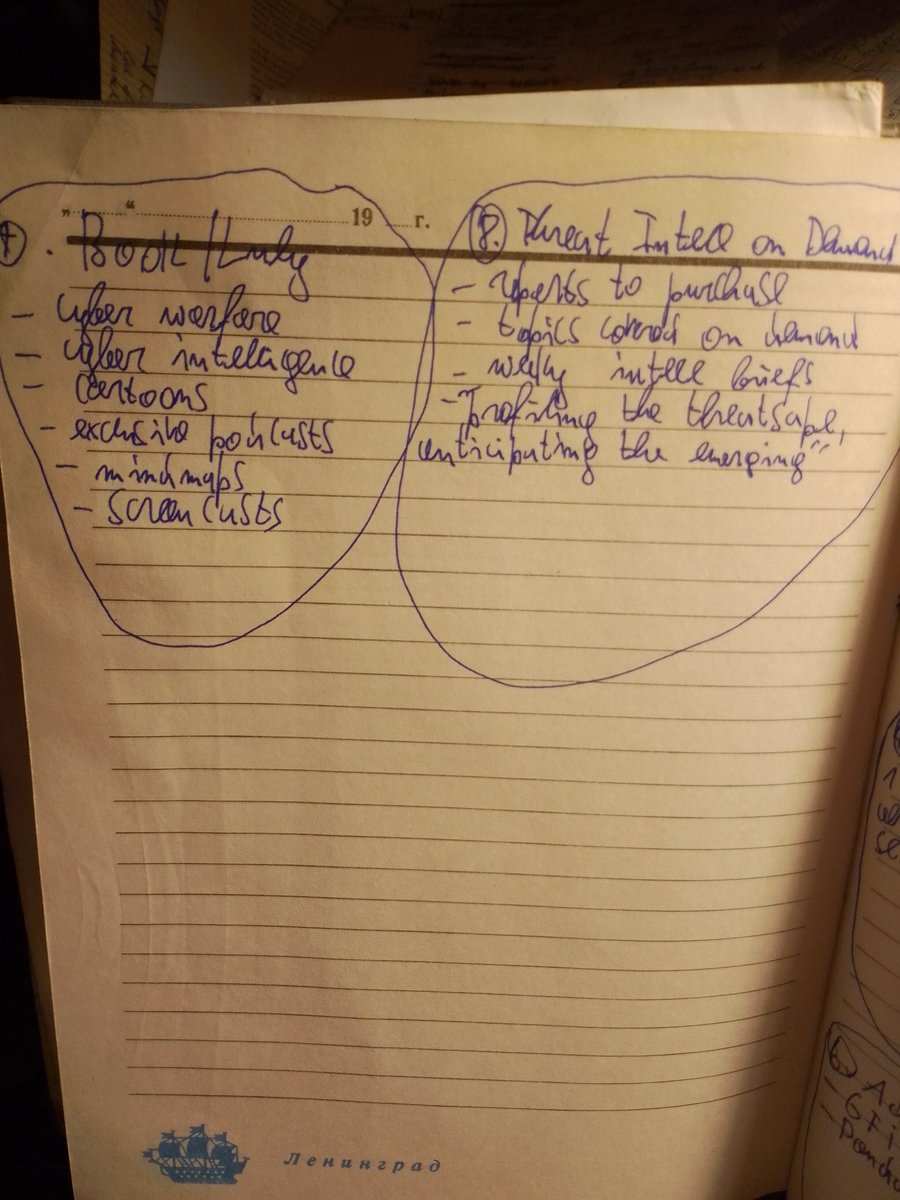 „ “ 19 г.
7. Book/Luly
- cyber warfare
- cyber intelligence
- cartoons
- exclusive podcasts
- mindmaps
- screencasts
8. Threat Intell on Demand
- reports to purchase
- topics covered on demand
- weekly intell briefs
- "Profiling the threatscape,
anticipating the emerging"
6 Ad
- GFi
- Panda
Ленинград